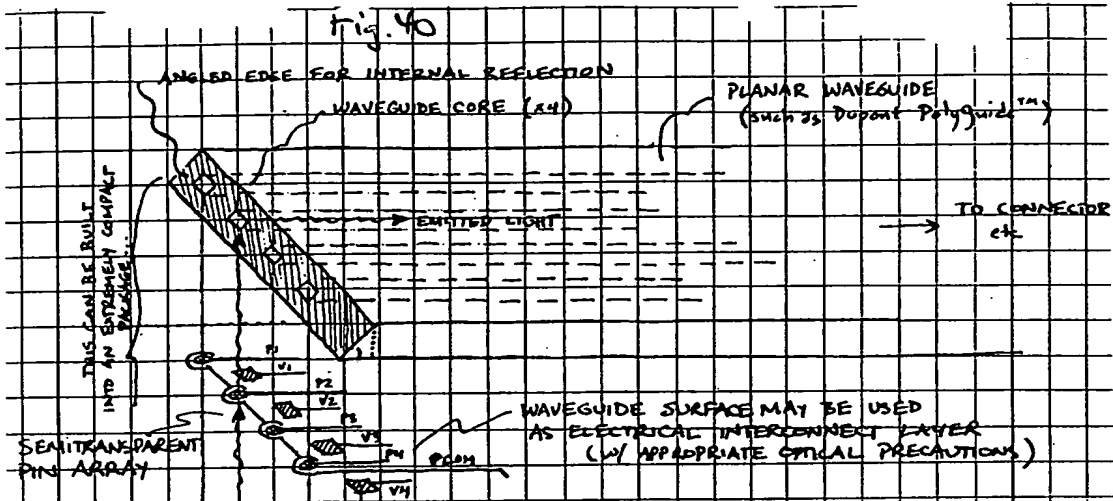 Fig. 40
ANGLED EDGE FOR INTERNAL REFLECTION
WAVEGUIDE CORE (x4)
PLANAR WAVEGUIDE
(such as Dupont Polyguide™)
EMITTED LIGHT
TO CONNECTOR
etc
THIS CAN BE BUILT
INTO AN EXTREMELY COMPACT
PACKAGE...
P1
V1
P2
V2
P3
V3
P4
PCOM
V4
SEMITRANSPARENT
PIN ARRAY
WAVEGUIDE SURFACE MAY BE USED
AS ELECTRICAL INTERCONNECT LAYER
(W/ APPROPRIATE OPTICAL PRECAUTIONS)